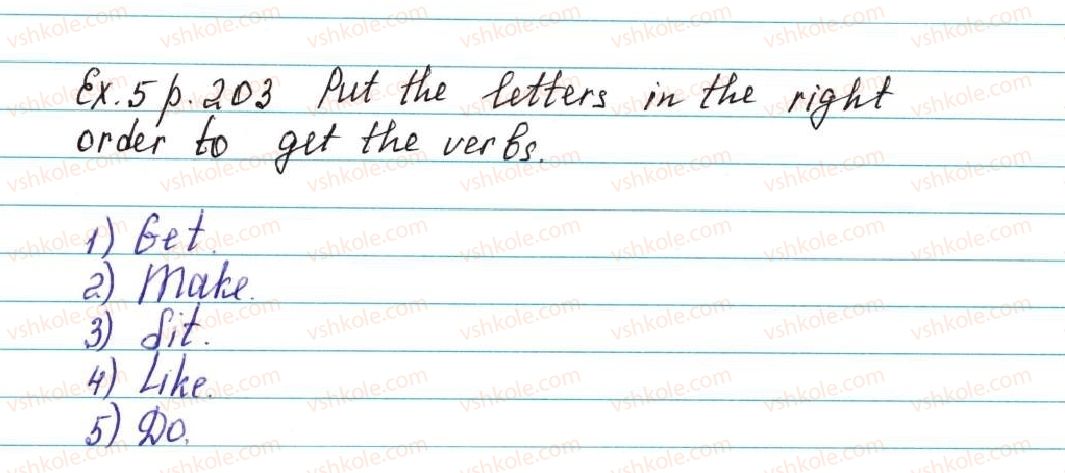 Ex. 5 p. 203 Put the letters in the right
order to get the verbs.
1) Get.
2) Make.
3) Sit.
4) Like.
5) Do.